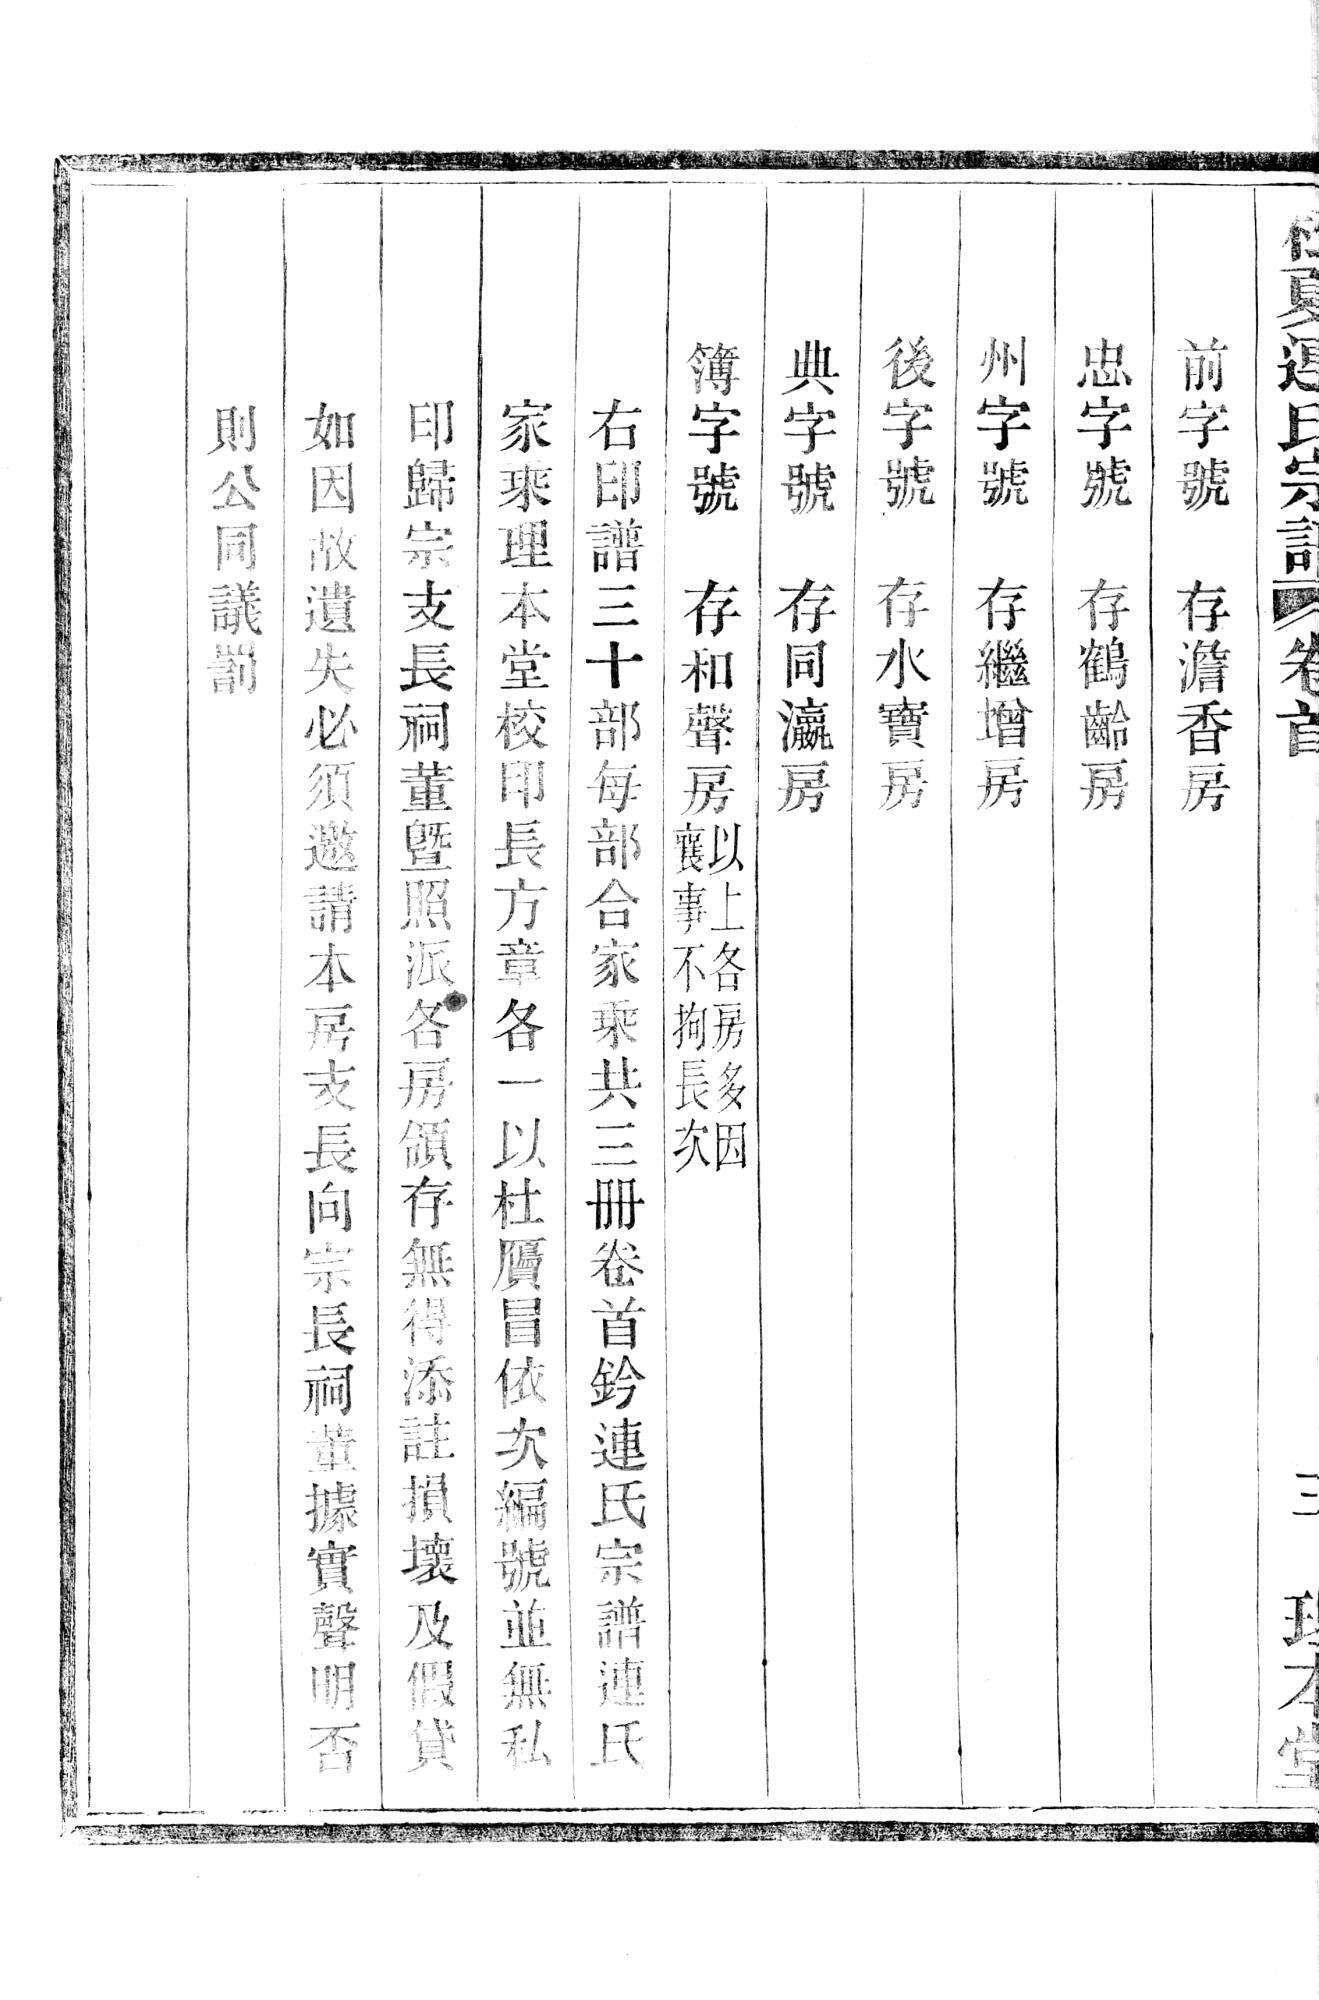 夏連氏宗譜 卷首 三 理本堂
前字號 存澹香房
忠字號 存鶴齡房
州字號 存繼增房
後字號 存水寶房
典字號 存同瀛房
簿字號 存和聲房 以上各房多因
襄事不拘長次
右印譜三十部每部合家乘共三冊卷首鈐連氏宗譜連氏
家乘理本堂校印長方章各一以杜贗冒依次編號並無私
印歸宗支長祠董曁照派各房領存無得添註損壞及假貸
如因故遺失必須邀請本房支長向宗長祠董據實聲明否
則公同議罰